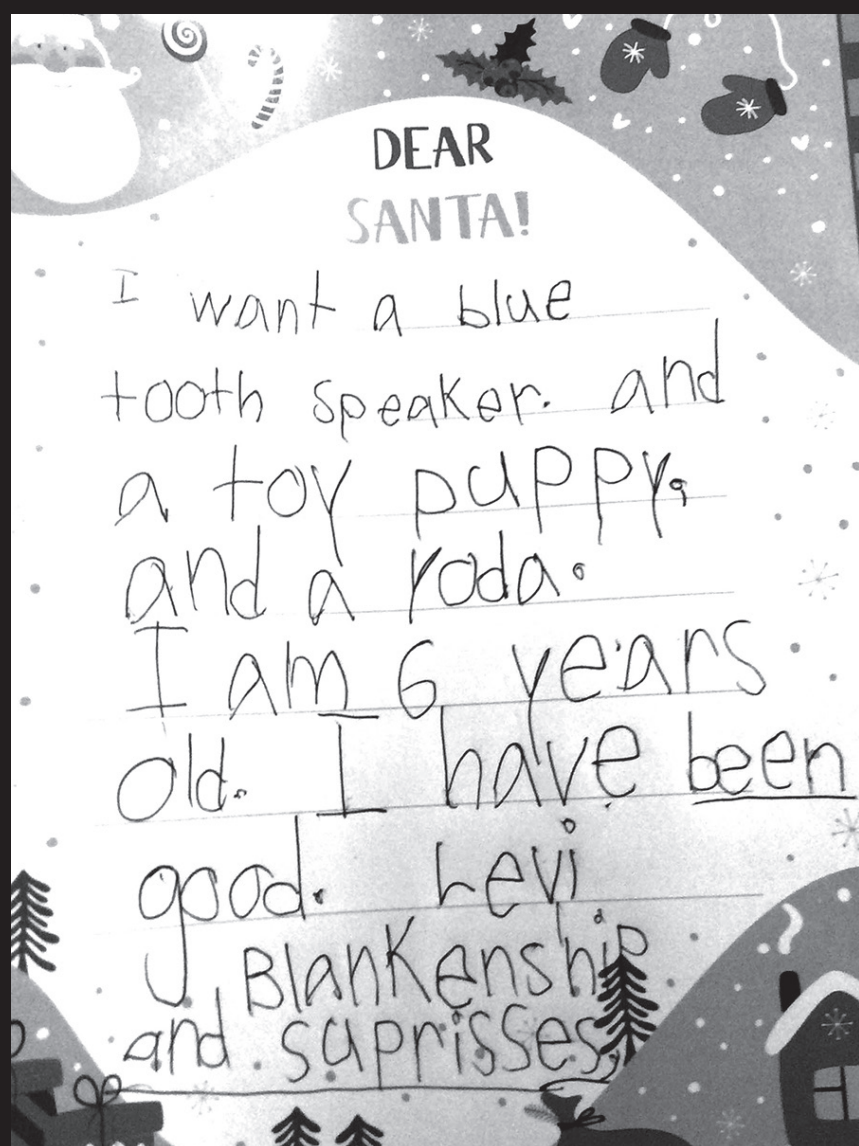 DEAR
SANTA!
I want a blue
tooth speaker. and
a toy puppy,
and a yoda.
I am 6 years
old. I have been
good. Levi
Blankenship
and suprisses,